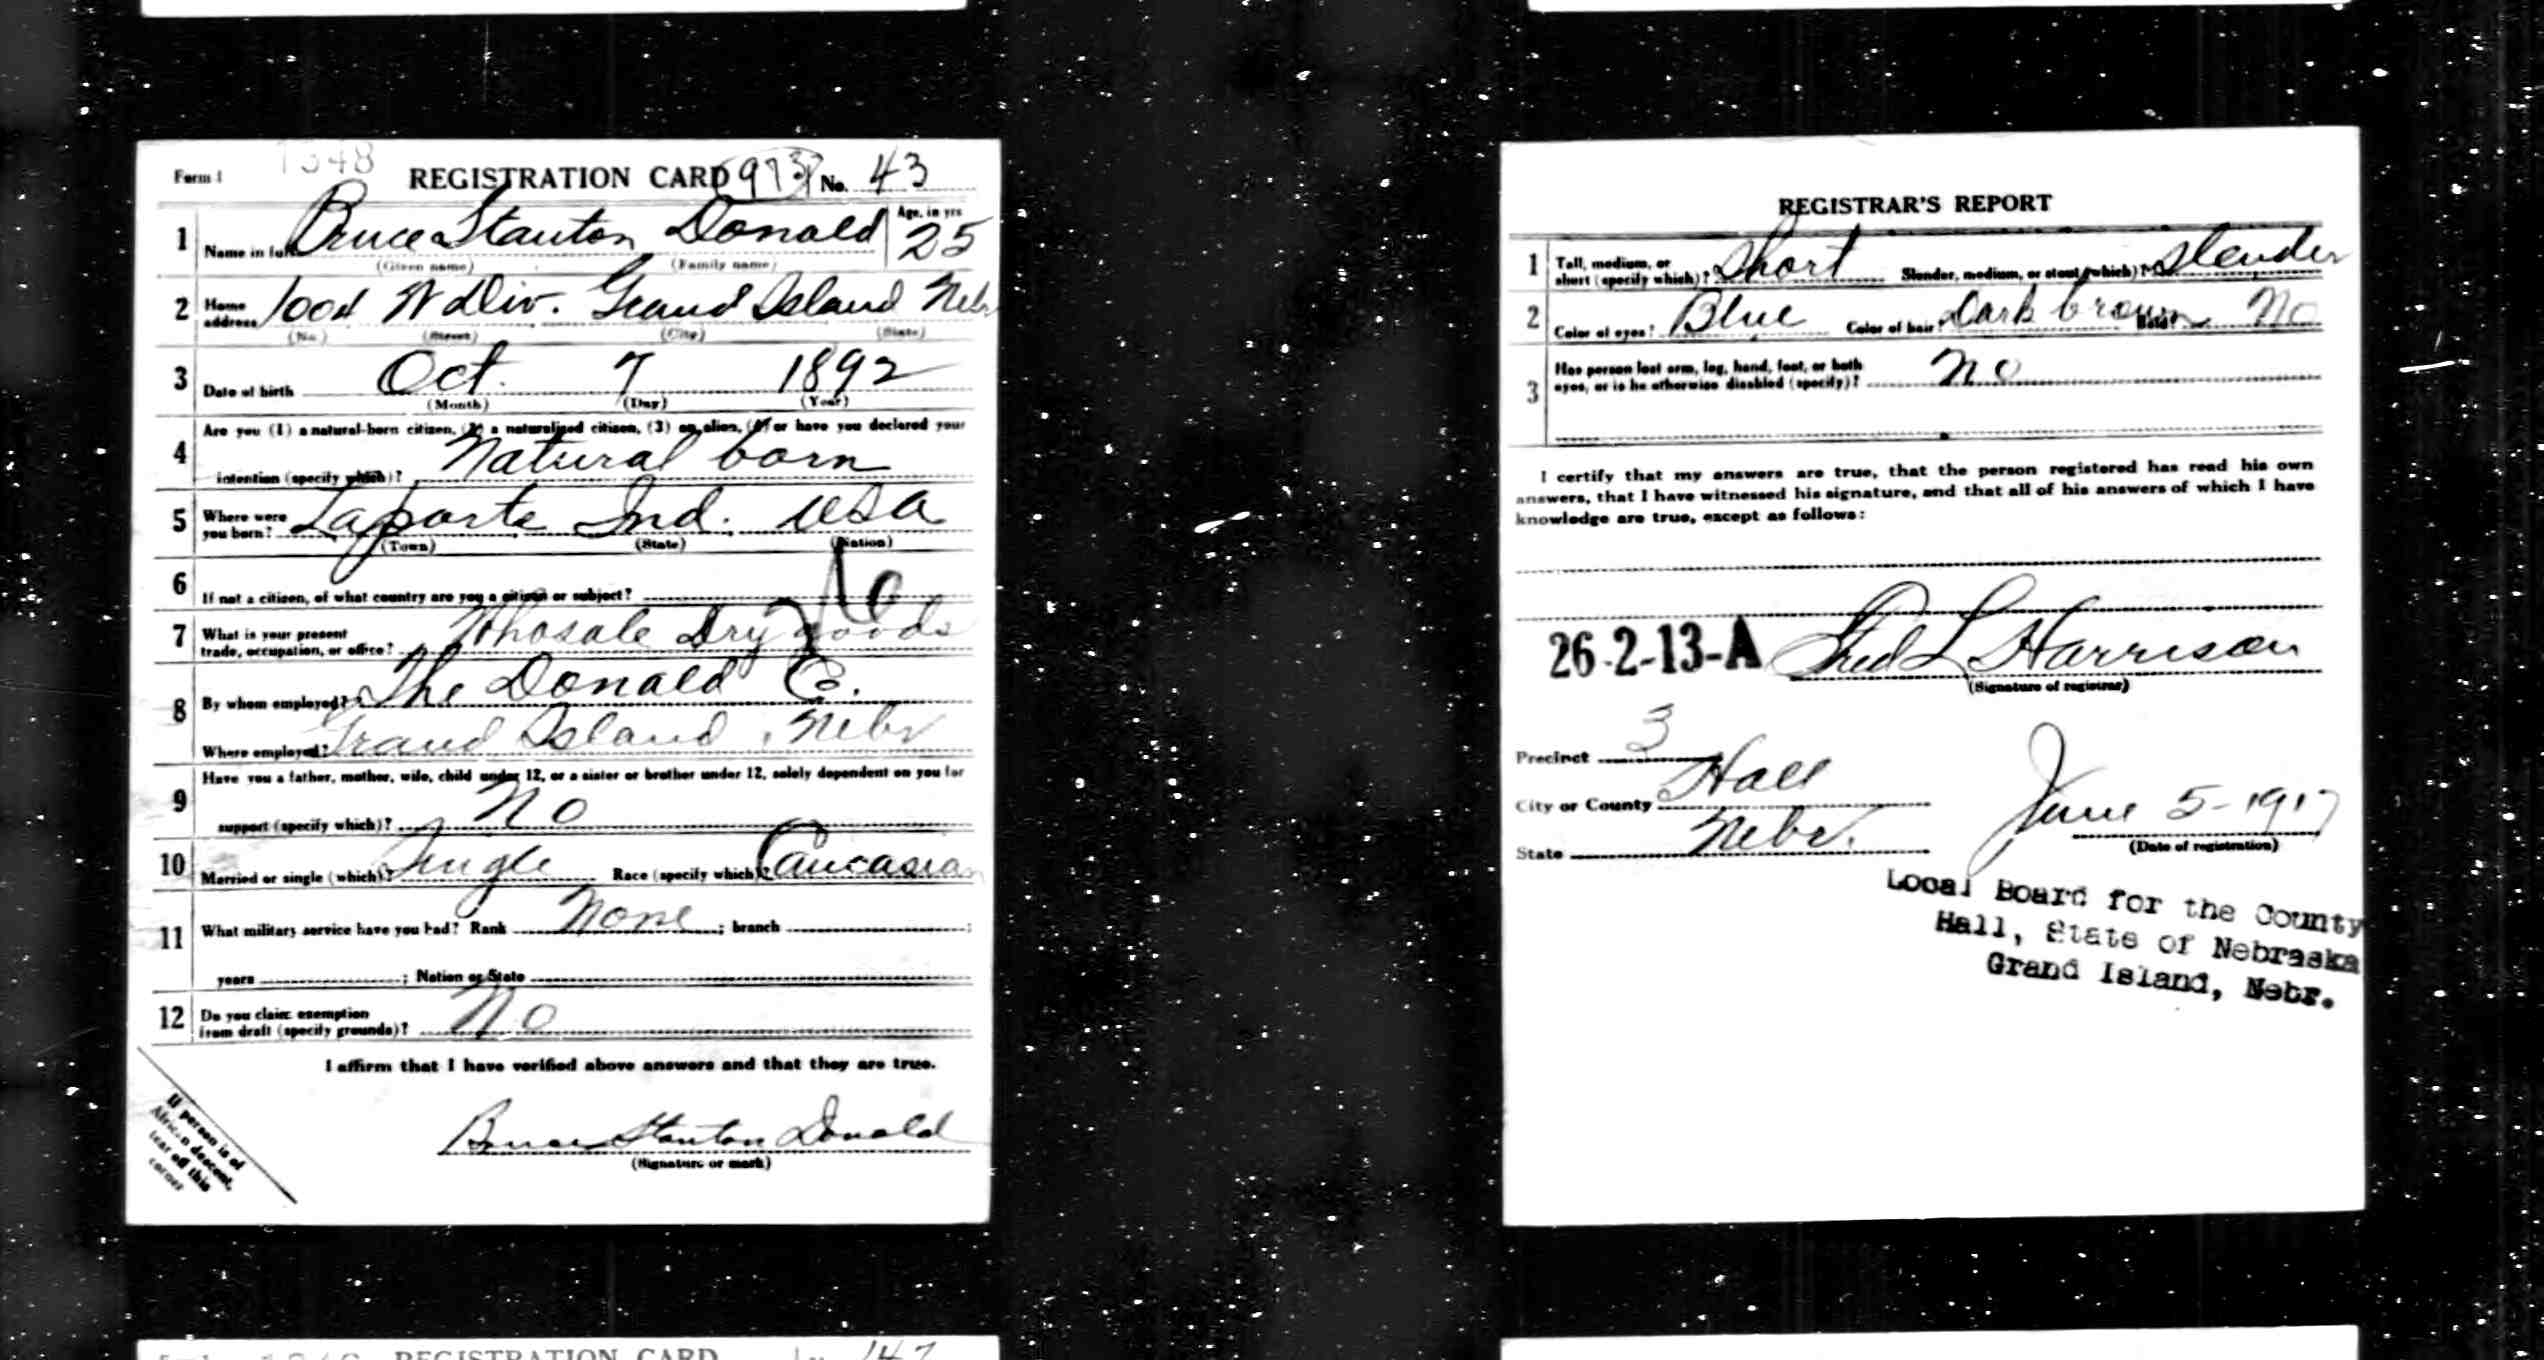 Form 1 1348 REGISTRATION CARD 973 No. 43
1 Name in full Bruce Stanton Donald Age, in yrs 25
(Given name) (Family name)
2 Home address 1004 W Div. Grand Island Nebr
(No.) (Street) (City) (State)
3 Date of birth Oct. 7 1892
(Month) (Day) (Year)
4 Are you (1) a natural-born citizen, (2) a naturalized citizen, (3) an alien, (4) or have you declared your
intention (specify which)? Natural born
5 Where were you born? Laporte Ind. USA
(Town) (State) (Nation)
6 If not a citizen, of what country are you a citizen or subject?
7 What is your present
trade, occupation, or office? Whosale Dry goods
8 By whom employed? The Donald Co.
Where employed? Grand Island, Nebr
9 Have you a father, mother, wife, child under 12, or a sister or brother under 12, solely dependent on you for
support (specify which)? No
10 Married or single (which)? Single Race (specify which)? Caucasian
11 What military service have you had? Rank None ; branch ;
years ; Nation or State
12 Do you claim exemption
from draft (specify grounds)? No
I affirm that I have verified above answers and that they are true.
Bruce Stanton Donald
(Signature or mark)
If person is of
African descent,
tear off this
corner
REGISTRATION CARD 147
REGISTRAR'S REPORT
1 Tall, medium, or
short (specify which)? Short Slender, medium, or stout (which)? Slender
2 Color of eyes? Blue Color of hair? Dark brown Bald? No
3 Has person lost arm, leg, hand, foot, or both
eyes, or is he otherwise disabled (specify)? No
I certify that my answers are true, that the person registered has read his own
answers, that I have witnessed his signature, and that all of his answers of which I have
knowledge are true, except as follows:
26-2-13-A Fred L Harrison
(Signature of registrar)
Precinct 3
City or County Hall
State Nebr.
June 5-1917
(Date of registration)
Local Board for the County
Hall, State of Nebraska
Grand Island, Nebr.